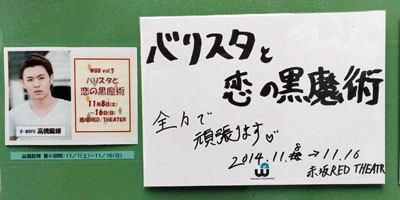 WBB vol.7
バリスタと
恋の黒魔術
11月8日(土)
~16日(日)
赤坂RED/THEATER
D-BOYS 高橋龍輝
高橋龍輝 展示期間:11/1(土)~11/16(日)
バリスタと
恋の黒魔術
全力で
頑張ります♡
2014.11.8→11.16
赤坂RED THEATR